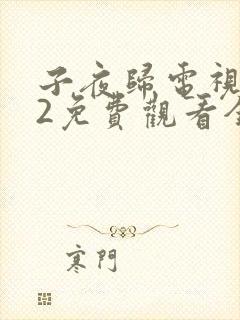 子夜歸電視
2免費觀看全
寒門